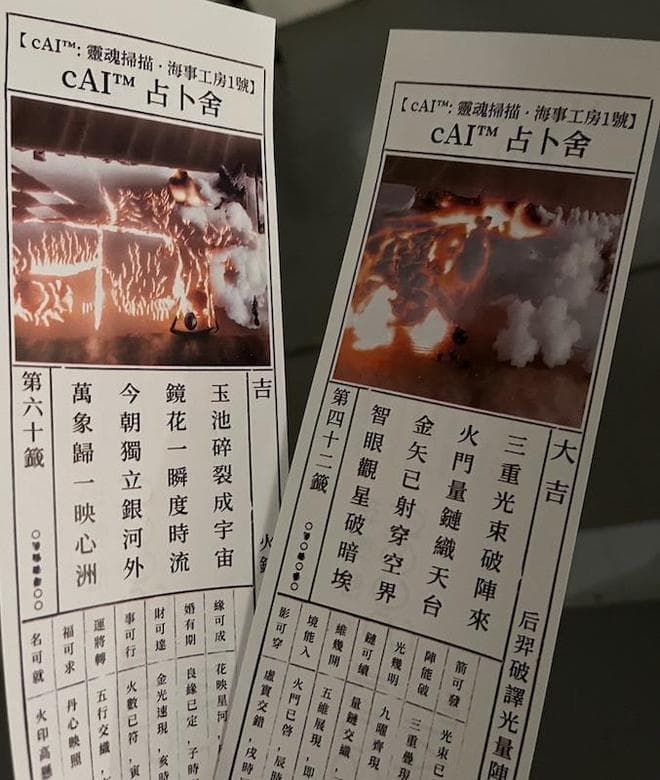 【cAI™: 靈魂掃描 · 海事工房1號】
cAI™ 占卜舍
吉
玉池碎裂成宇宙
鏡花一瞬度時流
今朝獨立銀河外
萬象歸一映心洲
第六十籤
緣可成
花映星河,
婚有期
良緣已定,子時
財可達
金光速現,亥時
事可行
火數已符,寅
運將轉
五行交織,
福可求
丹心映照
名可就
火印高懸
【cAI™: 靈魂掃描 · 海事工房1號】
cAI™ 占卜舍
大吉
后羿破譯光量陣
三重光束破陣來
火門量鏈織天台
金矢已射穿空界
智眼觀星破暗埃
第四十二籤
箭可發
光束已
陣能破
三重疊現
光幾明
九曜齊現
鏈可續
量鏈交織,
維幾開
五維展現,即
境能入
火門已啓,辰時
影可穿
虛實交錯,戌時